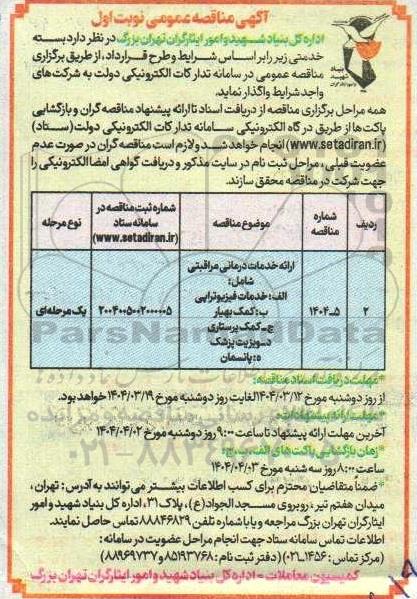 آگهی مناقصه عمومی نوبت اول
اداره کل بنیاد شهید و امور ایثارگران تهران بزرگ در نظر دارد بسته
خدمتی زیر را بر اساس شرایط و طرح قرارداد، از طریق برگزاری
مناقصه عمومی در سامانه تدارکات الکترونیکی دولت به شرکت‌های
واجد شرایط واگذار نماید.
همه مراحل برگزاری مناقصه از دریافت اسناد تا ارائه پیشنهاد مناقصه گران و بازگشایی
پاکت‌ها از طریق درگاه الکترونیکی سامانه تدارکات الکترونیکی دولت (ستاد)
(www.setadiran.ir) انجام خواهد شد و لازم است مناقصه گران در صورت عدم
عضویت قبلی، مراحل ثبت نام در سایت مذکور و دریافت گواهی امضا الکترونیکی را
جهت شرکت در مناقصه محقق سازند.
ردیف
شماره مناقصه
موضوع مناقصه
شماره ثبت مناقصه در سامانه ستاد (www.setadiran.ir)
نوع مرحله
۲
۵-۱۴۰۴
ارائه خدمات درمانی مراقبتی
شامل:
الف: خدمات فیزیوتراپی
ب: کمک بهیار
ج-کمک پرستاری
د-ویزیت پزشک
ه: پانسمان
۲۰۰۴۰۰۵۰۰۲۰۰۰۰۰۵
یک مرحله‌ای
*مهلت دریافت اسناد مناقصه:
از روز دوشنبه مورخ ۱۴۰۴/۰۳/۱۲ لغایت روز دوشنبه مورخ ۱۴۰۴/۰۳/۱۹ خواهد بود.
*مهلت ارائه پیشنهادات:
آخرین مهلت ارائه پیشنهاد تا ساعت ۹:۰۰ روز دوشنبه مورخ ۱۴۰۴/۰۴/۰۲
*زمان بازگشایی پاکت‌های الف، ب، ج:
ساعت ۸:۰۰ روز سه شنبه مورخ ۱۴۰۴/۰۴/۰۳
*ضمناً متقاضیان محترم برای کسب اطلاعات بیشتر می‌توانند به آدرس: تهران،
میدان هفتم تیر، روبروی مسجد الجواد(ع)، پلاک ۳۱، اداره کل بنیاد شهید و امور
ایثارگران تهران بزرگ مراجعه و یا با شماره تلفن ۸۸۸۴۶۸۲۹ تماس حاصل نمایند.
اطلاعات تماس سامانه ستاد جهت انجام مراحل عضویت در سامانه:
(مرکز تماس: ۱۴۵۶-۰۲۱) (دفتر ثبت نام: ۸۵۱۹۳۷۶۸ و ۸۸۹۶۹۷۳۷)
کمیسیون معاملات - اداره کل بنیاد شهید و امور ایثارگران تهران بزرگ